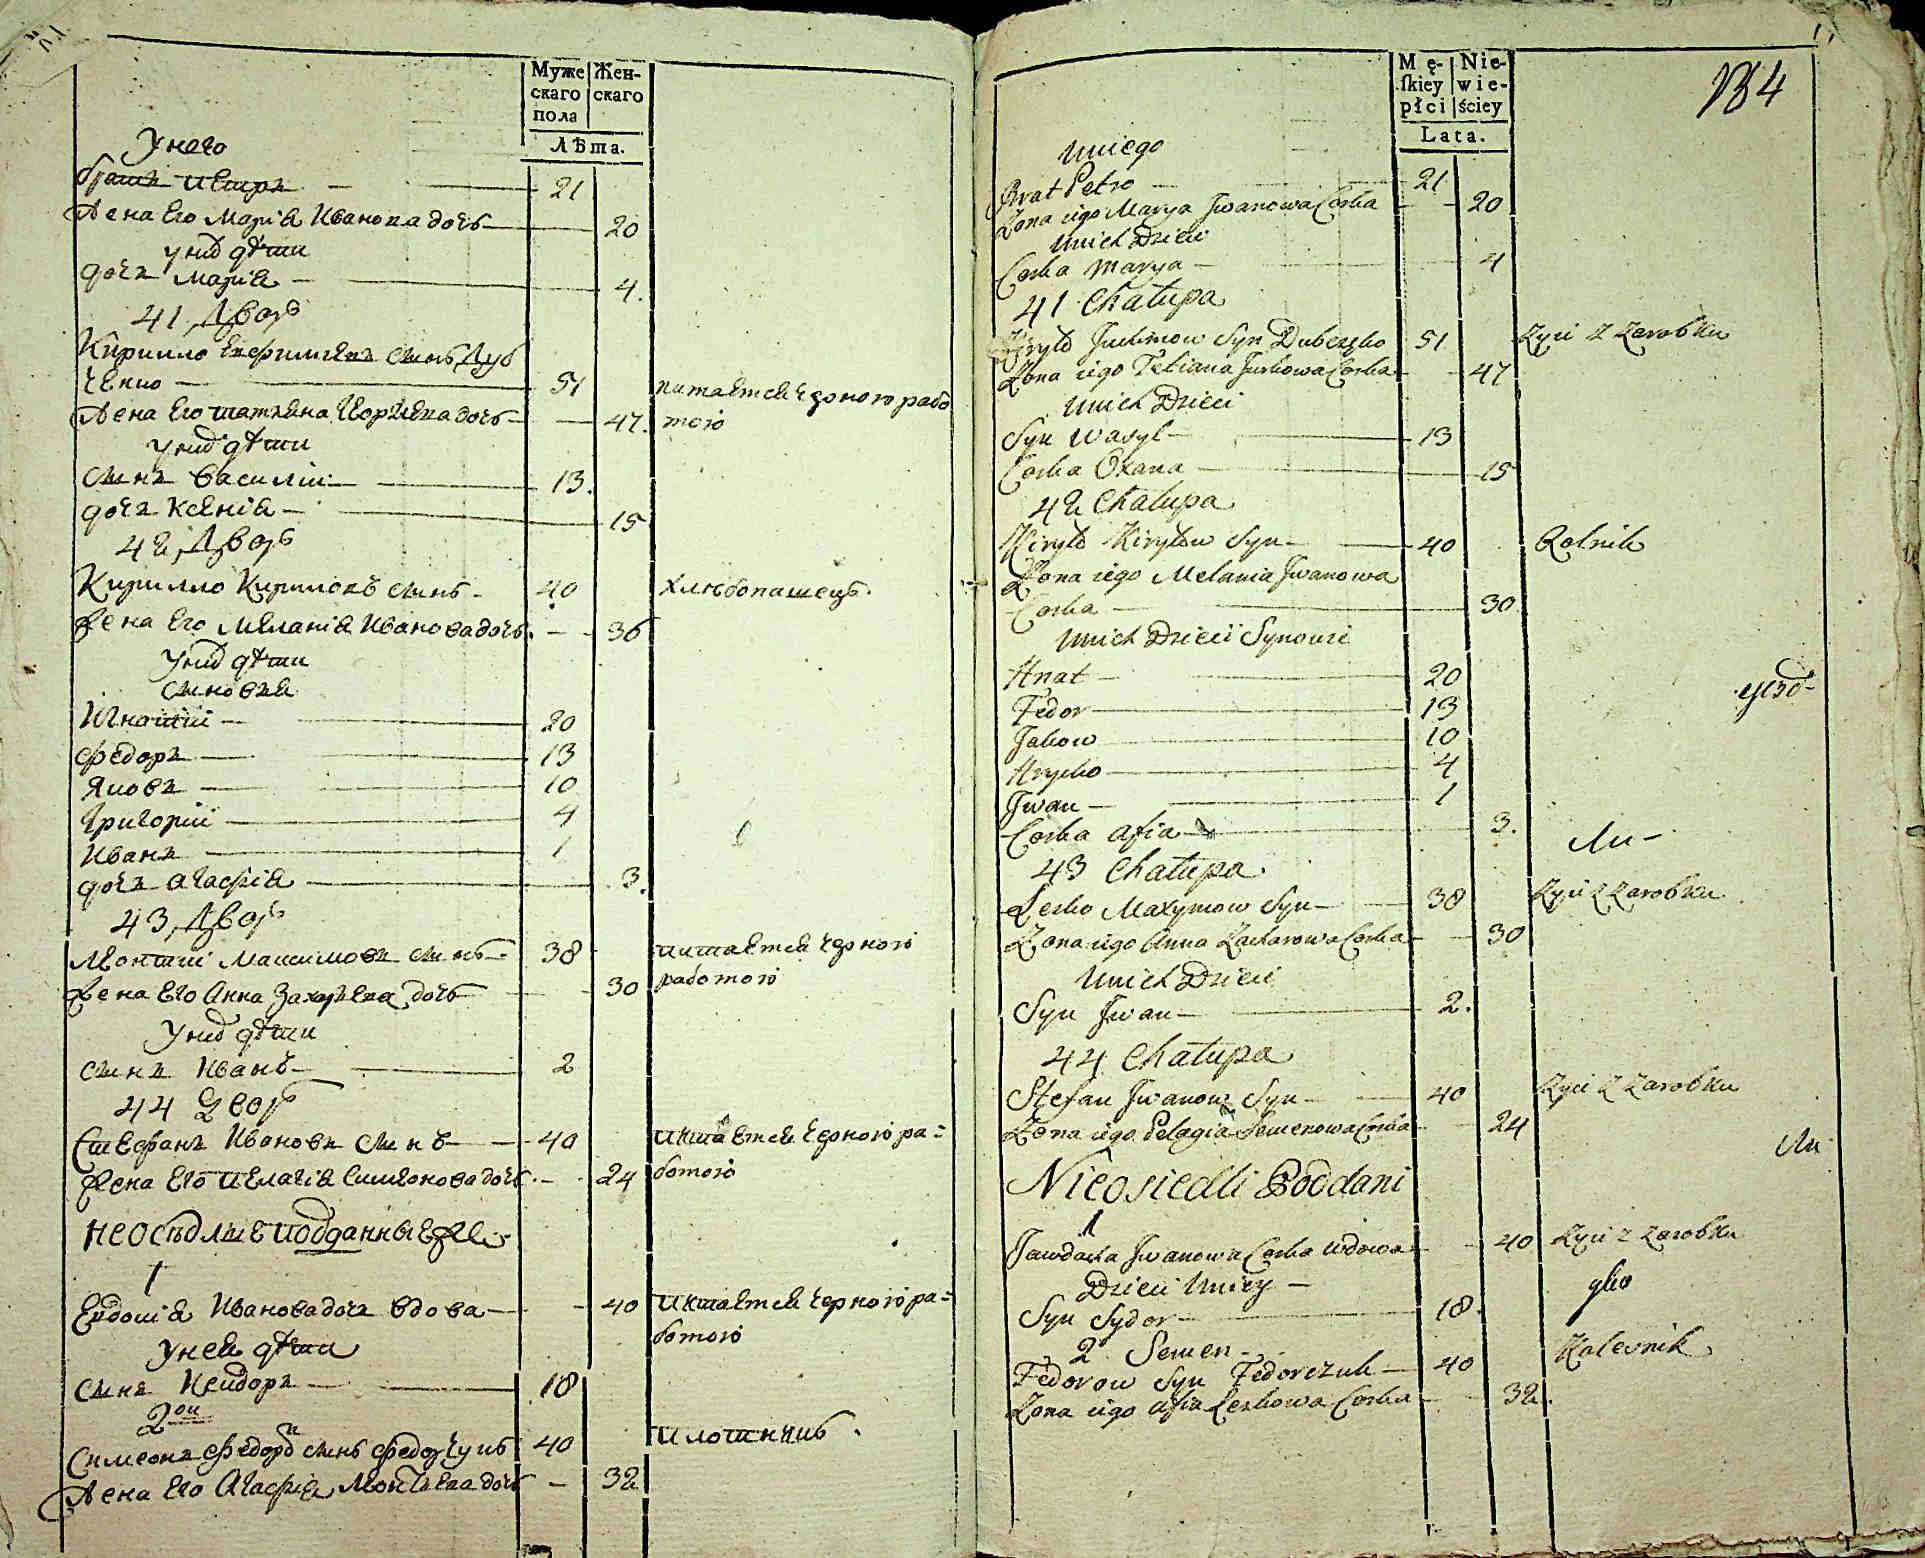 Муже Жен-
скаго скаго
пола
Лѣта.
У него
братъ Петръ — 21
Жена Его Марія Иванова дочь — 20
У них дѣти
дочь Марія — 4.
41 Дворъ
Кирилло Ефимовъ сынъ Дуб
ченко — 51
питается Черною рабо
Жена Его Татьяна Юрьева дочь — 47.
тою
У них дѣти
сынъ Василій — 13.
дочь Ксенія — 15
42 Дворъ
Кирилло Кириловъ сынъ — 40
хлѣбопашецъ.
Жена Его Меланія Иванова дочь — 36
У них дѣти
сыновья
Игнатій — 20
Федоръ — 13
Яковъ — 10
Григорій — 4
Иванъ — 1
дочь Агафія — 3.
43 Дворъ
Леонтий Максимовъ сынъ — 38
питается Черною
Жена Его Анна Захарьева дочь — 30
работою
У них дѣти
сынъ Иванъ — 2
44 Дворъ
Стефанъ Ивановъ сынъ — 40
питается Черною ра=
Жена Его Пелагія Симионова дочь — 24
ботою
Неосѣдлые подданные
1
Евдокія Иванова дочь вдова — 40
питается Черною ра=
ботою
У неи дѣти
сынъ Исидоръ — 18
2ои
Симеонъ Федоровъ сынъ Федорчукъ 40
плотникъ.
Жена Его Агафия Леонтьева дочь — 32
Mę- Nie-
skiey wie-
płci ściey
Lata.
184
Uniego
Brat Petro — 21
Zona iego Marya Jwanowa Corka — 20
Unich Dzieci
Corka Marya — 4
41 Chałupa
Kiryło Juchimow Syn Dubczęko 51
Zyie z Zarobku
Zona iego Tetiana Jurkowa Corka — 47
Unich Dzieci
Syn Wasyl — 13
Corka Oxana — 15
42 Chałupa
Kiryło Kiryłow Syn — 40
Rolnik
Zona iego Melania Jwanowa
Corka — 30
Unich Dzieci Synowie
Hnat — 20
Fedor — 13
Jakow — 10
Hryćko — 4
Jwan — 1
Corka Afia — 3.
43 Chałupa
Lesko Maxymow Syn — 38
Zyie z Zarobku
Zona iego Anna Zacharowa Corka — 30
Unich Dzieci
Syn Jwan — 2.
44 Chałupa
Stefan Jwanow Syn — 40
Zyie z Zarobku
Zona iego Pelagia Semenowa Corka — 24
Nieosiedli Poddani
1
Jawdocha Jwanowa Corka Wdowa — 40
Zyie z Zarobku
Dzieci Uniey —
Syn Sydor — 18.
2 Semen
Fedorow Syn Fedorczuk — 40
Kolesnik
Zona iego Afia Leskowa Corka — 32.